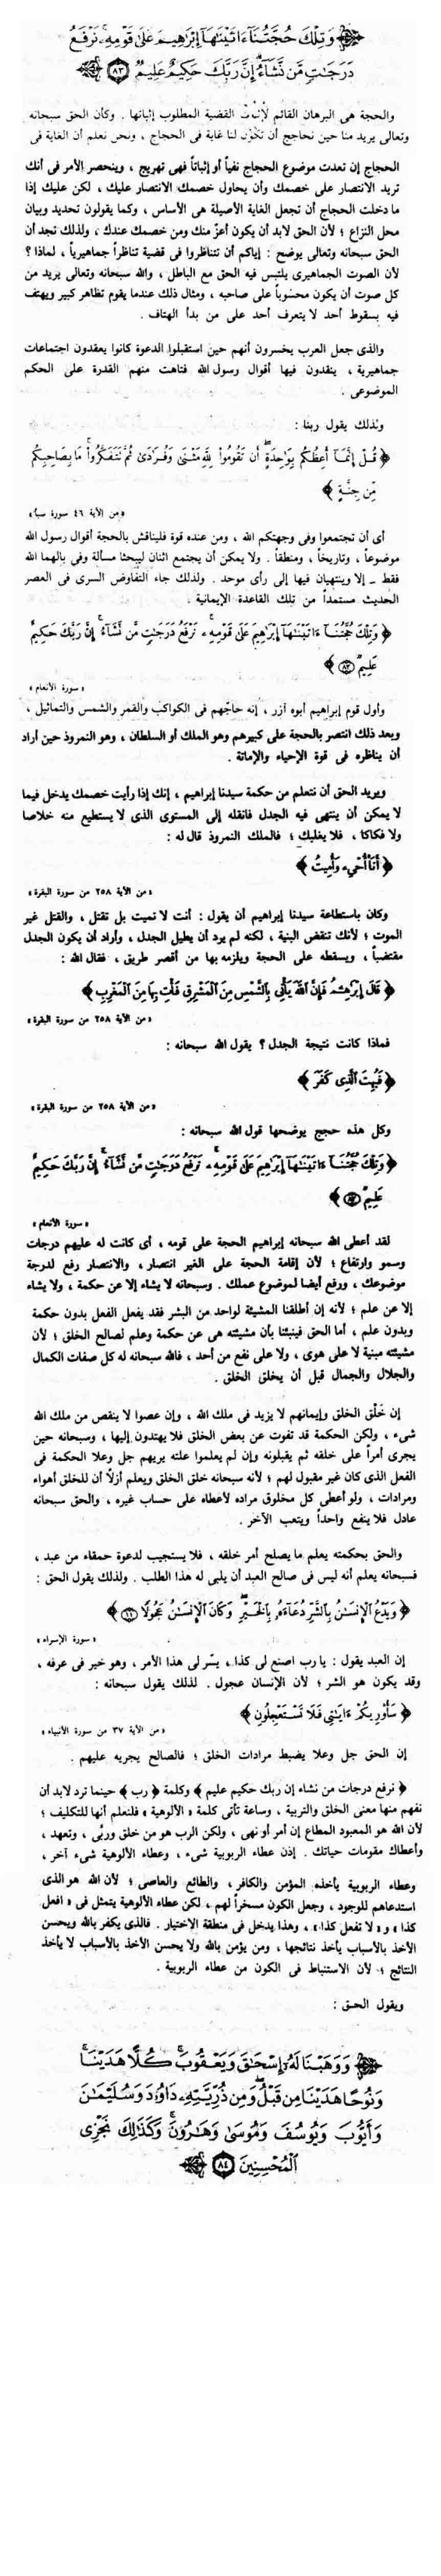 وَتِلْكَ حُجَّتُنَا ءَاتَيْنَٰهَا إِبْرَٰهِيمَ عَلَىٰ قَوْمِهِۦ نَرْفَعُ
دَرَجَٰتٍ مَّن نَّشَآءُ إِنَّ رَبَّكَ حَكِيمٌ عَلِيمٌ ۝٨٣
والحجة هى البرهان القائم لإثبات القضية المطلوب إثباتها . وكأن الحق سبحانه
وتعالى يريد منا حين نحاجج أن تكون لنا غاية فى الحجاج ، ونحن نعلم أن الغاية فى
الحجاج إن تعدت موضوع الحجاج نفياً أو إثباتاً فهى تهريج ، وينحصر الأمر فى أنك
تريد الانتصار على خصمك وأن يحاول خصمك الانتصار عليك ، لكن عليك إذا
ما دخلت الحجاج أن تجعل الغاية الأصيلة هى الأساس ، وكما يقولون تحديد وبيان
محل النزاع ؛ لأن الحق لابد أن يكون أعزّ منك ومن خصمك عندك ، ولذلك تجد أن
الحق سبحانه وتعالى يوضح : إياكم أن تتناظروا فى قضية تناظراً جماهيرياً ، لماذا ؟
لأن الصوت الجماهيرى يلتبس فيه الحق مع الباطل ، والله سبحانه وتعالى يريد من
كل صوت أن يكون محسوباً على صاحبه ، ومثال ذلك عندما يقوم تظاهر كبير ويهتف
فيه بسقوط أحد لا يتعرف أحد على من بدأ الهتاف .
والذى جعل العرب يخسرون أنهم حين استقبلوا الدعوة كانوا يعقدون اجتماعات
جماهيرية ، ينقدون فيها أقوال رسول الله فتاهت منهم القدرة على الحكم
الموضوعى .
ولذلك يقول ربنا :
﴿ قُلْ إِنَّمَآ أَعِظُكُم بِوَٰحِدَةٍ أَن تَقُومُوا۟ لِلَّهِ مَثْنَىٰ وَفُرَٰدَىٰ ثُمَّ تَتَفَكَّرُوا۟ مَا بِصَاحِبِكُم
مِّن جِنَّةٍ ﴾
« من الآية ٤٦ سورة سبأ »
أى أن تجتمعوا وفى وجهتكم الله ، ومن عنده قوة فليناقش بالحجة أقوال رسول الله
موضوعاً ، وتاريخاً ، ومنطقاً . ولا يمكن أن يجتمع اثنان ليبحثا مسألة وفى بالهما الله
فقط ـ إلا وينتهيان فيها إلى رأى موحد . ولذلك جاء التفاوض السرى فى العصر
الحديث مستمداً من تلك القاعدة الإيمانية .
﴿ وَتِلْكَ حُجَّتُنَآ ءَاتَيْنَٰهَآ إِبْرَٰهِيمَ عَلَىٰ قَوْمِهِۦ نَرْفَعُ دَرَجَٰتٍ مَّن نَّشَآءُ إِنَّ رَبَّكَ حَكِيمٌ
عَلِيمٌ ۝٨٣ ﴾
« سورة الأنعام »
وأول قوم إبراهيم أبوه آزر ، إنه حاجّهم فى الكواكب والقمر والشمس والتماثيل ،
وبعد ذلك انتصر بالحجة على كبيرهم وهو الملك أو السلطان ، وهو النمروذ حين أراد
أن يناظره فى قوة الإحياء والإماتة .
ويريد الحق أن نتعلم من حكمة سيدنا إبراهيم ، إنك إذا رأيت خصمك يدخل فيما
لا يمكن أن ينتهى فيه الجدل فانقله إلى المستوى الذى لا يستطيع منه خلاصا
ولا فكاكا ، فلا يغلبك ؛ فالملك النمروذ قال له :
﴿ أَنَا۠ أُحْىِۦ وَأُمِيتُ ﴾
« من الآية ٢٥٨ من سورة البقرة »
وكان باستطاعة سيدنا إبراهيم أن يقول : أنت لا تميت بل تقتل ، والقتل غير
الموت ؛ لأنك تنقض البنية ، لكنه لم يرد أن يطيل الجدل ، وأراد أن يكون الجدل
مقتضباً ، ويسقطه على الحجة ويلزمه بها من أقصر طريق ، فقال الله :
﴿ قَالَ إِبْرَٰهِۦمُ فَإِنَّ ٱللَّهَ يَأْتِى بِٱلشَّمْسِ مِنَ ٱلْمَشْرِقِ فَأْتِ بِهَا مِنَ ٱلْمَغْرِبِ ﴾
« من الآية ٢٥٨ من سورة البقرة »
فماذا كانت نتيجة الجدل ؟ يقول الله سبحانه :
﴿ فَبُهِتَ ٱلَّذِى كَفَرَ ﴾
« من الآية ٢٥٨ من سورة البقرة »
وكل هذه حجج يوضحها قول الله سبحانه :
﴿ وَتِلْكَ حُجَّتُنَآ ءَاتَيْنَٰهَآ إِبْرَٰهِيمَ عَلَىٰ قَوْمِهِۦ نَرْفَعُ دَرَجَٰتٍ مَّن نَّشَآءُ إِنَّ رَبَّكَ حَكِيمٌ
عَلِيمٌ ۝٨٣ ﴾
« سورة الأنعام »
لقد أعطى الله سبحانه إبراهيم الحجة على قومه ، أى كانت له عليهم درجات
وسمو وارتفاع ؛ لأن إقامة الحجة على الغير انتصار ، والانتصار رفع لدرجة
موضوعك ، ورفع أيضا لموضوع عملك . وسبحانه لا يشاء إلا عن حكمة ، ولا يشاء
إلا عن علم ؛ لأنه إن أطلقنا المشيئة لواحد من البشر فقد يفعل الفعل بدون حكمة
وبدون علم ، أما الحق فينبئنا بأن مشيئته هى عن حكمة وعلم لصالح الخلق ؛ لأن
مشيئته مبنية لا على هوى ، ولا على نفع من أحد ، فالله سبحانه له كل صفات الكمال
والجلال والجمال قبل أن يخلق الخلق .
إن خَلْق الخلق وإيمانهم لا يزيد فى ملك الله ، وإن عصوا لا ينقص من ملك الله
شىء ، ولكن الحكمة قد تفوت عن بعض الخلق فلا يهتدون إليها ، وسبحانه حين
يجرى أمراً على خلقه ثم يقبلونه وإن لم يعلموا علته يريهم جل وعلا الحكمة فى
الفعل الذى كان غير مقبول لهم ؛ لأنه سبحانه خلق الخلق ويعلم أزلاً أن للخلق أهواء
ومرادات ، ولو أعطى كل مخلوق مراده لأعطاه على حساب غيره ، والحق سبحانه
عادل فلا ينفع واحداً ويتعب الآخر .
والحق بحكمته يعلم ما يصلح أمر خلقه ، فلا يستجيب لدعوة حمقاء من عبد ،
فسبحانه يعلم أنه ليس فى صالح العبد أن يلبى له هذا الطلب . ولذلك يقول الحق :
﴿ وَيَدْعُ ٱلْإِنسَٰنُ بِٱلشَّرِّ دُعَآءَهُۥ بِٱلْخَيْرِ وَكَانَ ٱلْإِنسَٰنُ عَجُولًا ۝١١ ﴾
« سورة الإسراء »
إن العبد يقول : يا رب اصنع لى كذا ، يسّر لى هذا الأمر ، وهو خير فى عرفه ،
وقد يكون هو الشر ؛ لأن الإنسان عجول . لذلك يقول سبحانه :
﴿ سَأُو۟رِيكُمْ ءَايَٰتِى فَلَا تَسْتَعْجِلُونِ ﴾
« من الآية ٣٧ من سورة الأنبياء »
إن الحق جل وعلا يضبط مرادات الخلق ؛ فالصالح يجريه عليهم .
﴿ نرفع درجات من نشاء إن ربك حكيم عليم ﴾ وكلمة ﴿ رب ﴾ حينما ترد لابد أن
نفهم منها معنى الخلق والتربية ، وساعة تأتى كلمة « الألوهية » فلنعلم أنها للتكليف ؛
لأن الله هو المعبود المطاع إن أمر أو نهى ، ولكن الرب هو من خلق وربَّى ، وتعهد ،
وأعطاك مقومات حياتك . إذن عطاء الربوبية شىء ، وعطاء الألوهية شىء آخر ،
وعطاء الربوبية يأخذه المؤمن والكافر ، والطائع والعاصى ؛ لأن الله هو الذى
استدعاهم للوجود ، وجعل الكون مسخراً لهم ، لكن عطاء الألوهية يتمثل فى « افعل
كذا » و « لا تفعل كذا » ، وهذا يدخل فى منطقة الاختيار . فالذى يكفر بالله ويحسن
الأخذ بالأسباب يأخذ نتائجها ، ومن يؤمن بالله ولا يحسن الأخذ بالأسباب لا يأخذ
النتائج ؛ لأن الاستنباط فى الكون من عطاء الربوبية .
ويقول الحق :
وَوَهَبْنَا لَهُۥٓ إِسْحَٰقَ وَيَعْقُوبَ كُلًّا هَدَيْنَا
وَنُوحًا هَدَيْنَا مِن قَبْلُ وَمِن ذُرِّيَّتِهِۦ دَاوُۥدَ وَسُلَيْمَٰنَ
وَأَيُّوبَ وَيُوسُفَ وَمُوسَىٰ وَهَٰرُونَ وَكَذَٰلِكَ نَجْزِى
ٱلْمُحْسِنِينَ ۝٨٤